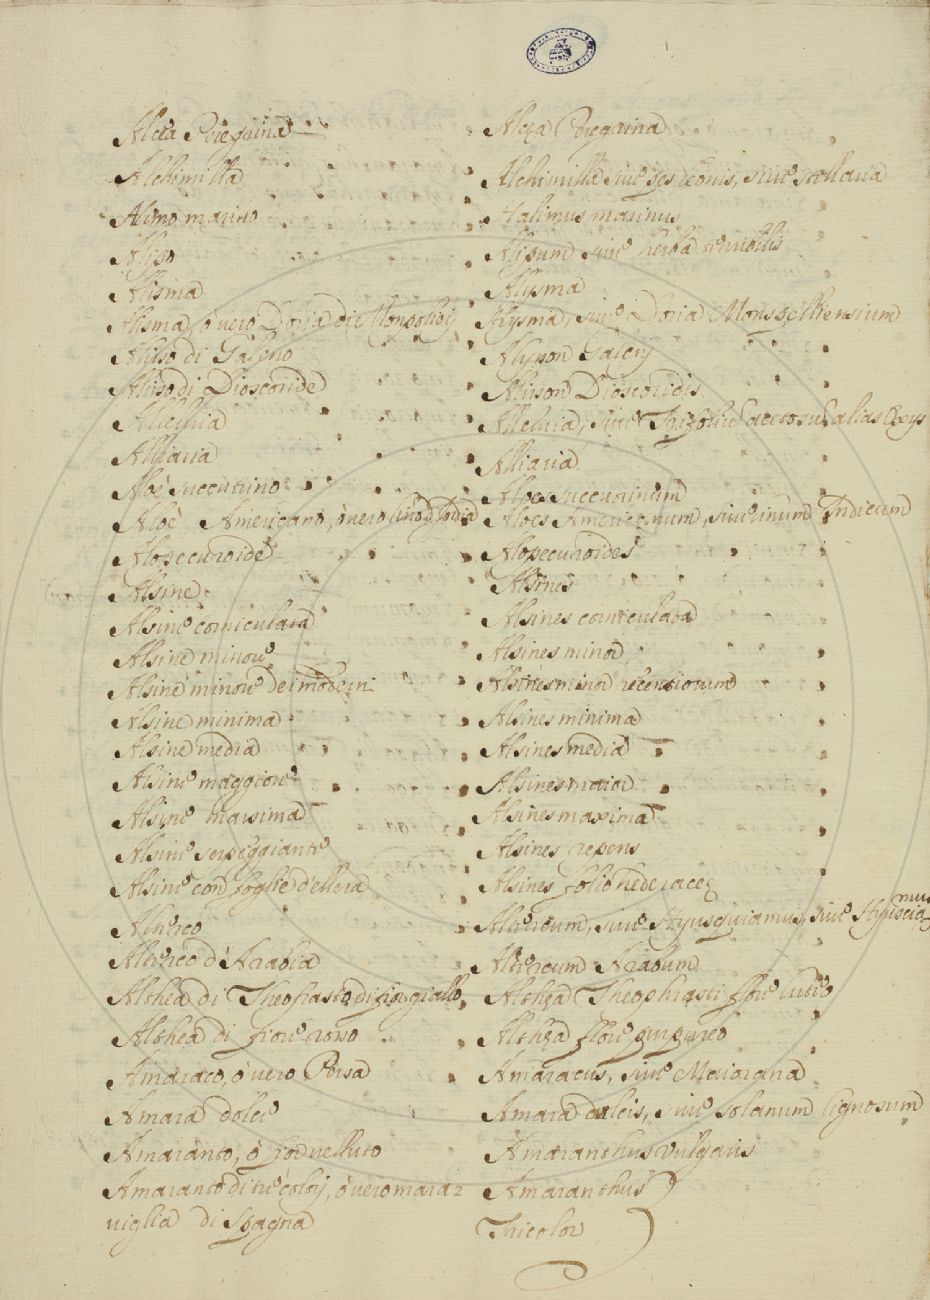 Alcea Peregrina Alcea Peregrina
Alchimilla Alchimilla sive pes leonis, sive stellaria
Alimo marino Halimus marinus
Alipo Alipum sive herba terribilis
Alisma Alysma
Alisma, ò vero Doria di Monpolieij Alysma, sive Doria Monspelliensium
Aliso di Galeno Alyson Galenij
Aliso di Dioscoride Alison Dioscoridis
Alleluia Alleluia, sive Trifolium acetosum alias Oxys
Alliaria Alliaria
Aloè succutrino Aloes succutrinum
Aloè Americano, ò vero lino d'India Aloes Americanum, sive linum Indicum
Alopecuroide Alopecuroides
Alsine Alsines
Alsine corniculata Alsines corniculata
Alsine minore Alsines minor
Alsine minore dei moderni Alsines minor recentiorum
Alsine minima Alsines minima
Alsine media Alsines media
Alsine maggiore Alsines maior
Alsine massima Alsines maxima
Alsine serpeggiante Alsines repens
Alsine con foglie d'ellera Alsines folio hederaceę
Alterco Altercum, sive Hyusquiamus, sive Hyuscia mus
Alterco d'Arabia Altercum Arabum
Althea di Theofrasto di fior giallo Althęa Theophrasti flore luteo
Althea di fiore rosso Althęa flore purpureo
Amaraco, ò vero Persa Amaracus, sive Maiorana
Amara dolce Amara dulcis, sive solanum lignosum
Amaranto, ò fior velluto Amaranthus vulgaris
Amaranto di tre colori, ò vero mara= Amaranthus
viglia di Spagna Tricolor